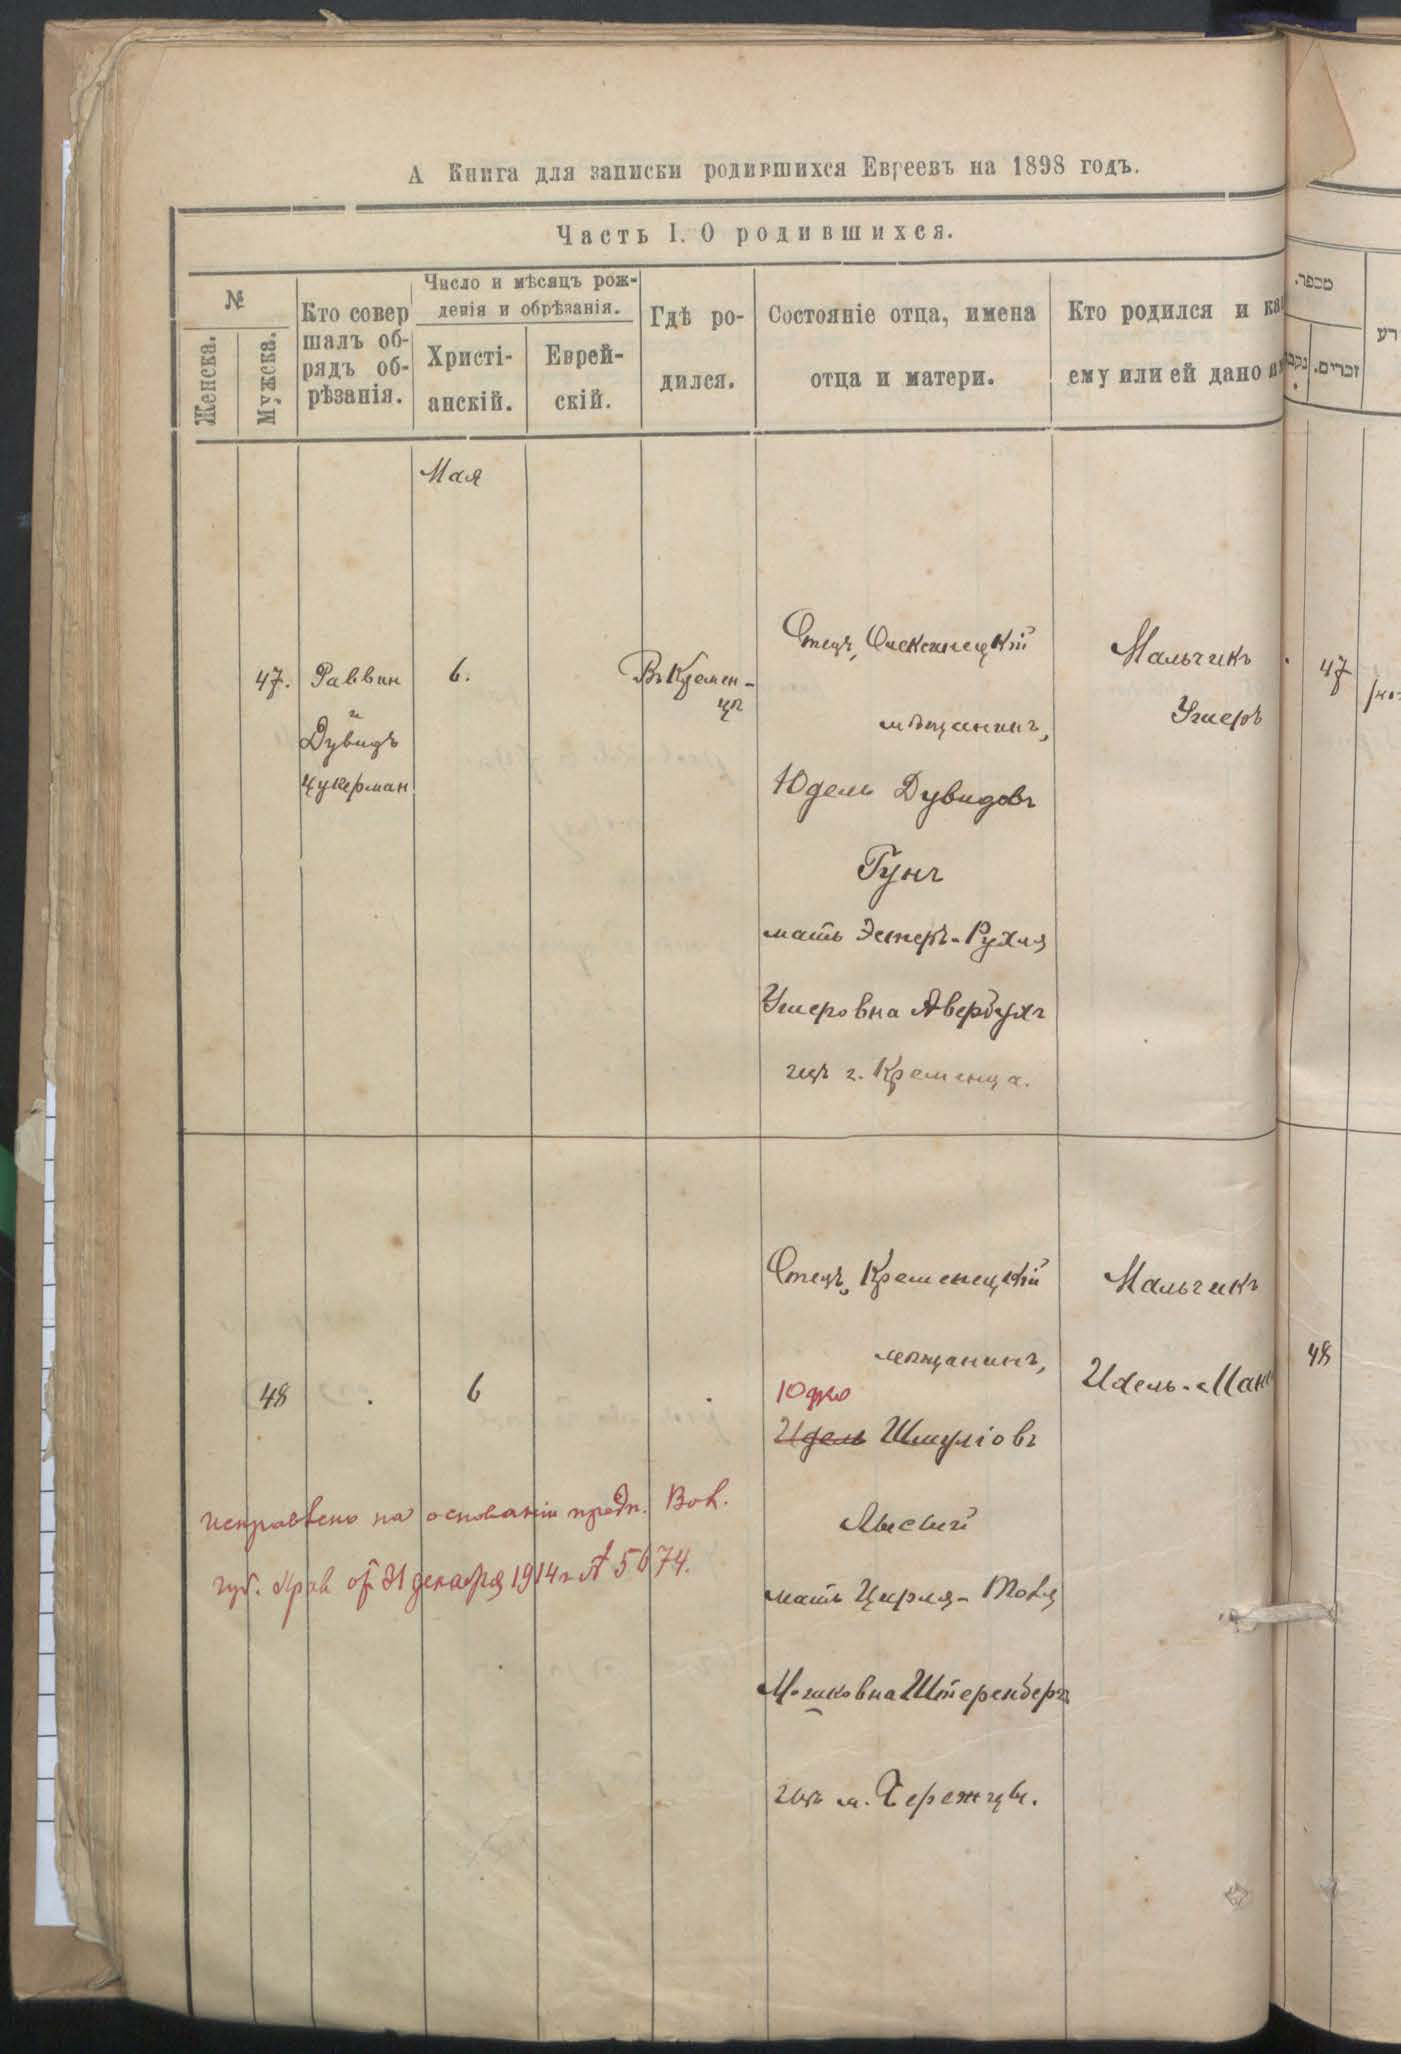 А Книга для записки родившихся Евреевъ на 1898 годъ.
Часть I. О родившихся.
№
Женска.
Мужска.
Кто совер
шалъ об-
рядъ об-
рѣзанія.
Число и мѣсяцъ рож-
денія и обрѣзанія.
Христі-
анскій.
Еврей-
скій.
Гдѣ ро-
дился.
Состояніе отца, имена
отца и матери.
Кто родился и ка
ему или ей дано
Мая
47.
Раввин
и
Дувидъ
Цукерман
6.
Въ Кремен-
цѣ
Отецъ,
мѣщанинъ,
Юдель Дувидовъ
Гунъ
мать Эстеръ-Рухля
Ушеровна Авербухъ
изъ г. Кременца.
Мальчикъ
Ушеръ
48
6
Отецъ, Кременецкій
мѣщанинъ,
Юдко
Идель Шмуліовъ
мать Цирля-
Мошковна Штеренберг
изъ м.
Мальчикъ
исправлено на основаніи предп. Вол.
губ. Прав от 31 декабря 1914 г № 5674.
מספר.
זכרים.
47
48